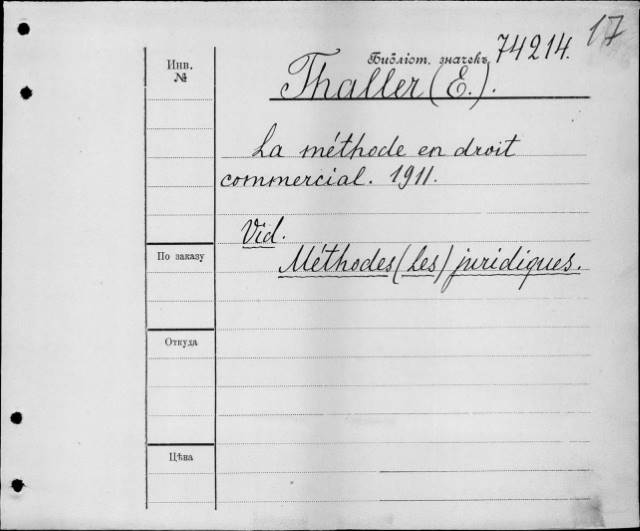 17
Библіот. значекъ 74214.
Инв.
№
Thaller (E.).
La méthode en droit
commercial. 1911.
Vid.
По заказу
Méthodes (Les) juridiques.
Откуда
Цѣна